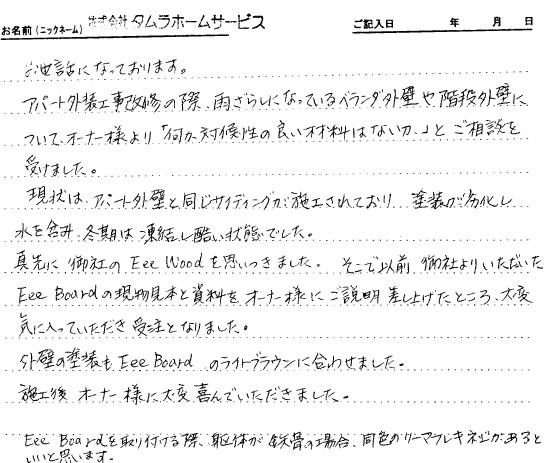 お名前(ニックネーム) 株式会社 タムラホームサービス ご記入日 年 月 日
お世話になっております。
アパート外装工事改修の際、雨ざらしになっているベランダ外壁や階段外壁に
ついて、オーナー様より「何か対候性の良い材料はないか。」とご相談を
受けました。
現状は、アパート外壁と同じサイディングが施工されており、塗装が劣化し
水を含み、冬期は凍結し酷い状態でした。
真先に御社のEee Woodを思いつきました。そこで以前、御社よりいただいた
Eee Boardの現物見本と資料をオーナー様にご説明差し上げたところ、大変
気に入っていただき受注となりました。
外壁の塗装もEee Board のライトブラウンに合わせました。
施工後オーナー様に大変喜んでいただきました。
Eee Boardを取り付ける際、躯体が鉄骨の場合、同色のリーマフレキネジがあると
いいと思います。